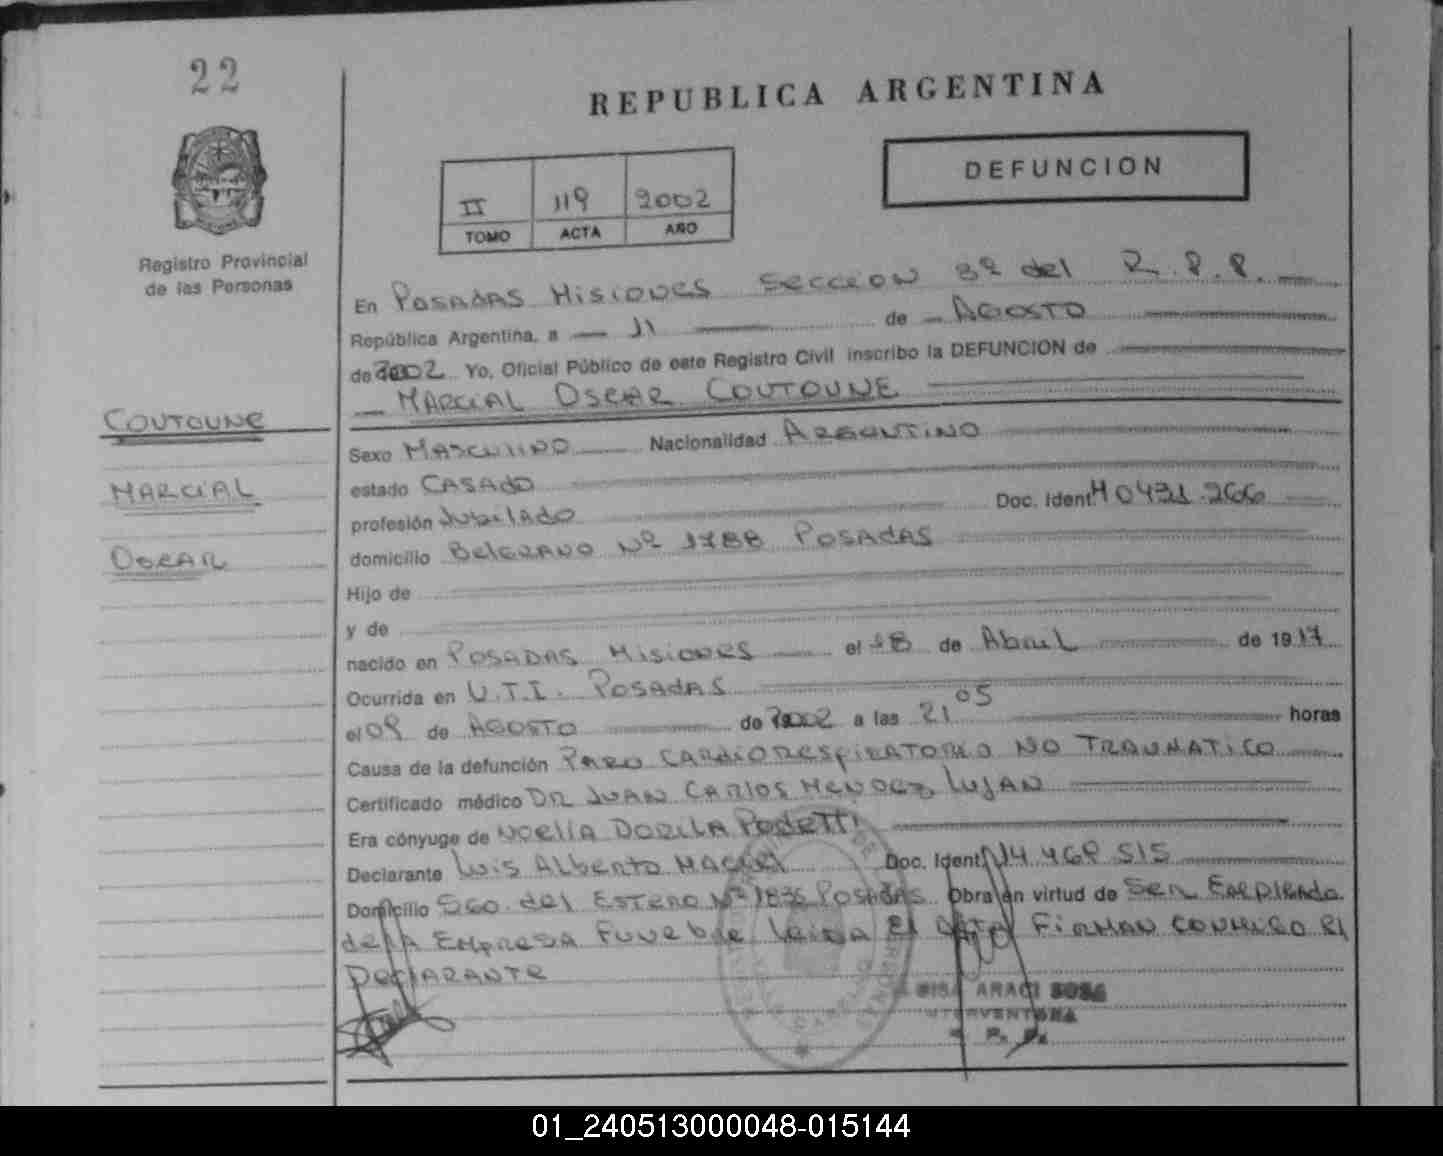 22
REPUBLICA ARGENTINA
DEFUNCION
II 119 2002
TOMO ACTA AÑO
Registro Provincial
de las Personas
En POSADAS MISIONES SECCION 3ª del R.P.P.
República Argentina, a 11 de AGOSTO
de 2002 Yo, Oficial Público de este Registro Civil inscribo la DEFUNCION de
MARCIAL OSCAR COUTOUNE
COUTOUNE
MARCIAL
OSCAR
Sexo MASCULINO Nacionalidad ARGENTINO
estado CASADO
profesión JUBILADO Doc. Ident M 0431.266
domicilio BELGRANO Nº 1788 POSADAS
Hijo de
y de
nacido en POSADAS MISIONES el 18 de Abril de 1917
Ocurrida en U.T.I. POSADAS
el 09 de AGOSTO de 2002 a las 21 05 horas
Causa de la defunción PARO CARDIORESPIRATORIO NO TRAUMATICO
Certificado médico DR JUAN CARLOS MENDEZ LUJAN
Era cónyuge de NOELIA DORILA PODETTI
Declarante LUIS ALBERTO MACIEL Doc. Ident 14.469 515
Domicilio SGO. del ESTERO Nº 1836 POSADAS Obra en virtud de SER EMPLEADO
de la EMPRESA FUNEBRE leida El ACTA FIRMAN CONMIGO El
DECLARANTE
ARACI SOSA
INTERVENTORA
R. P. P.
01_240513000048-015144